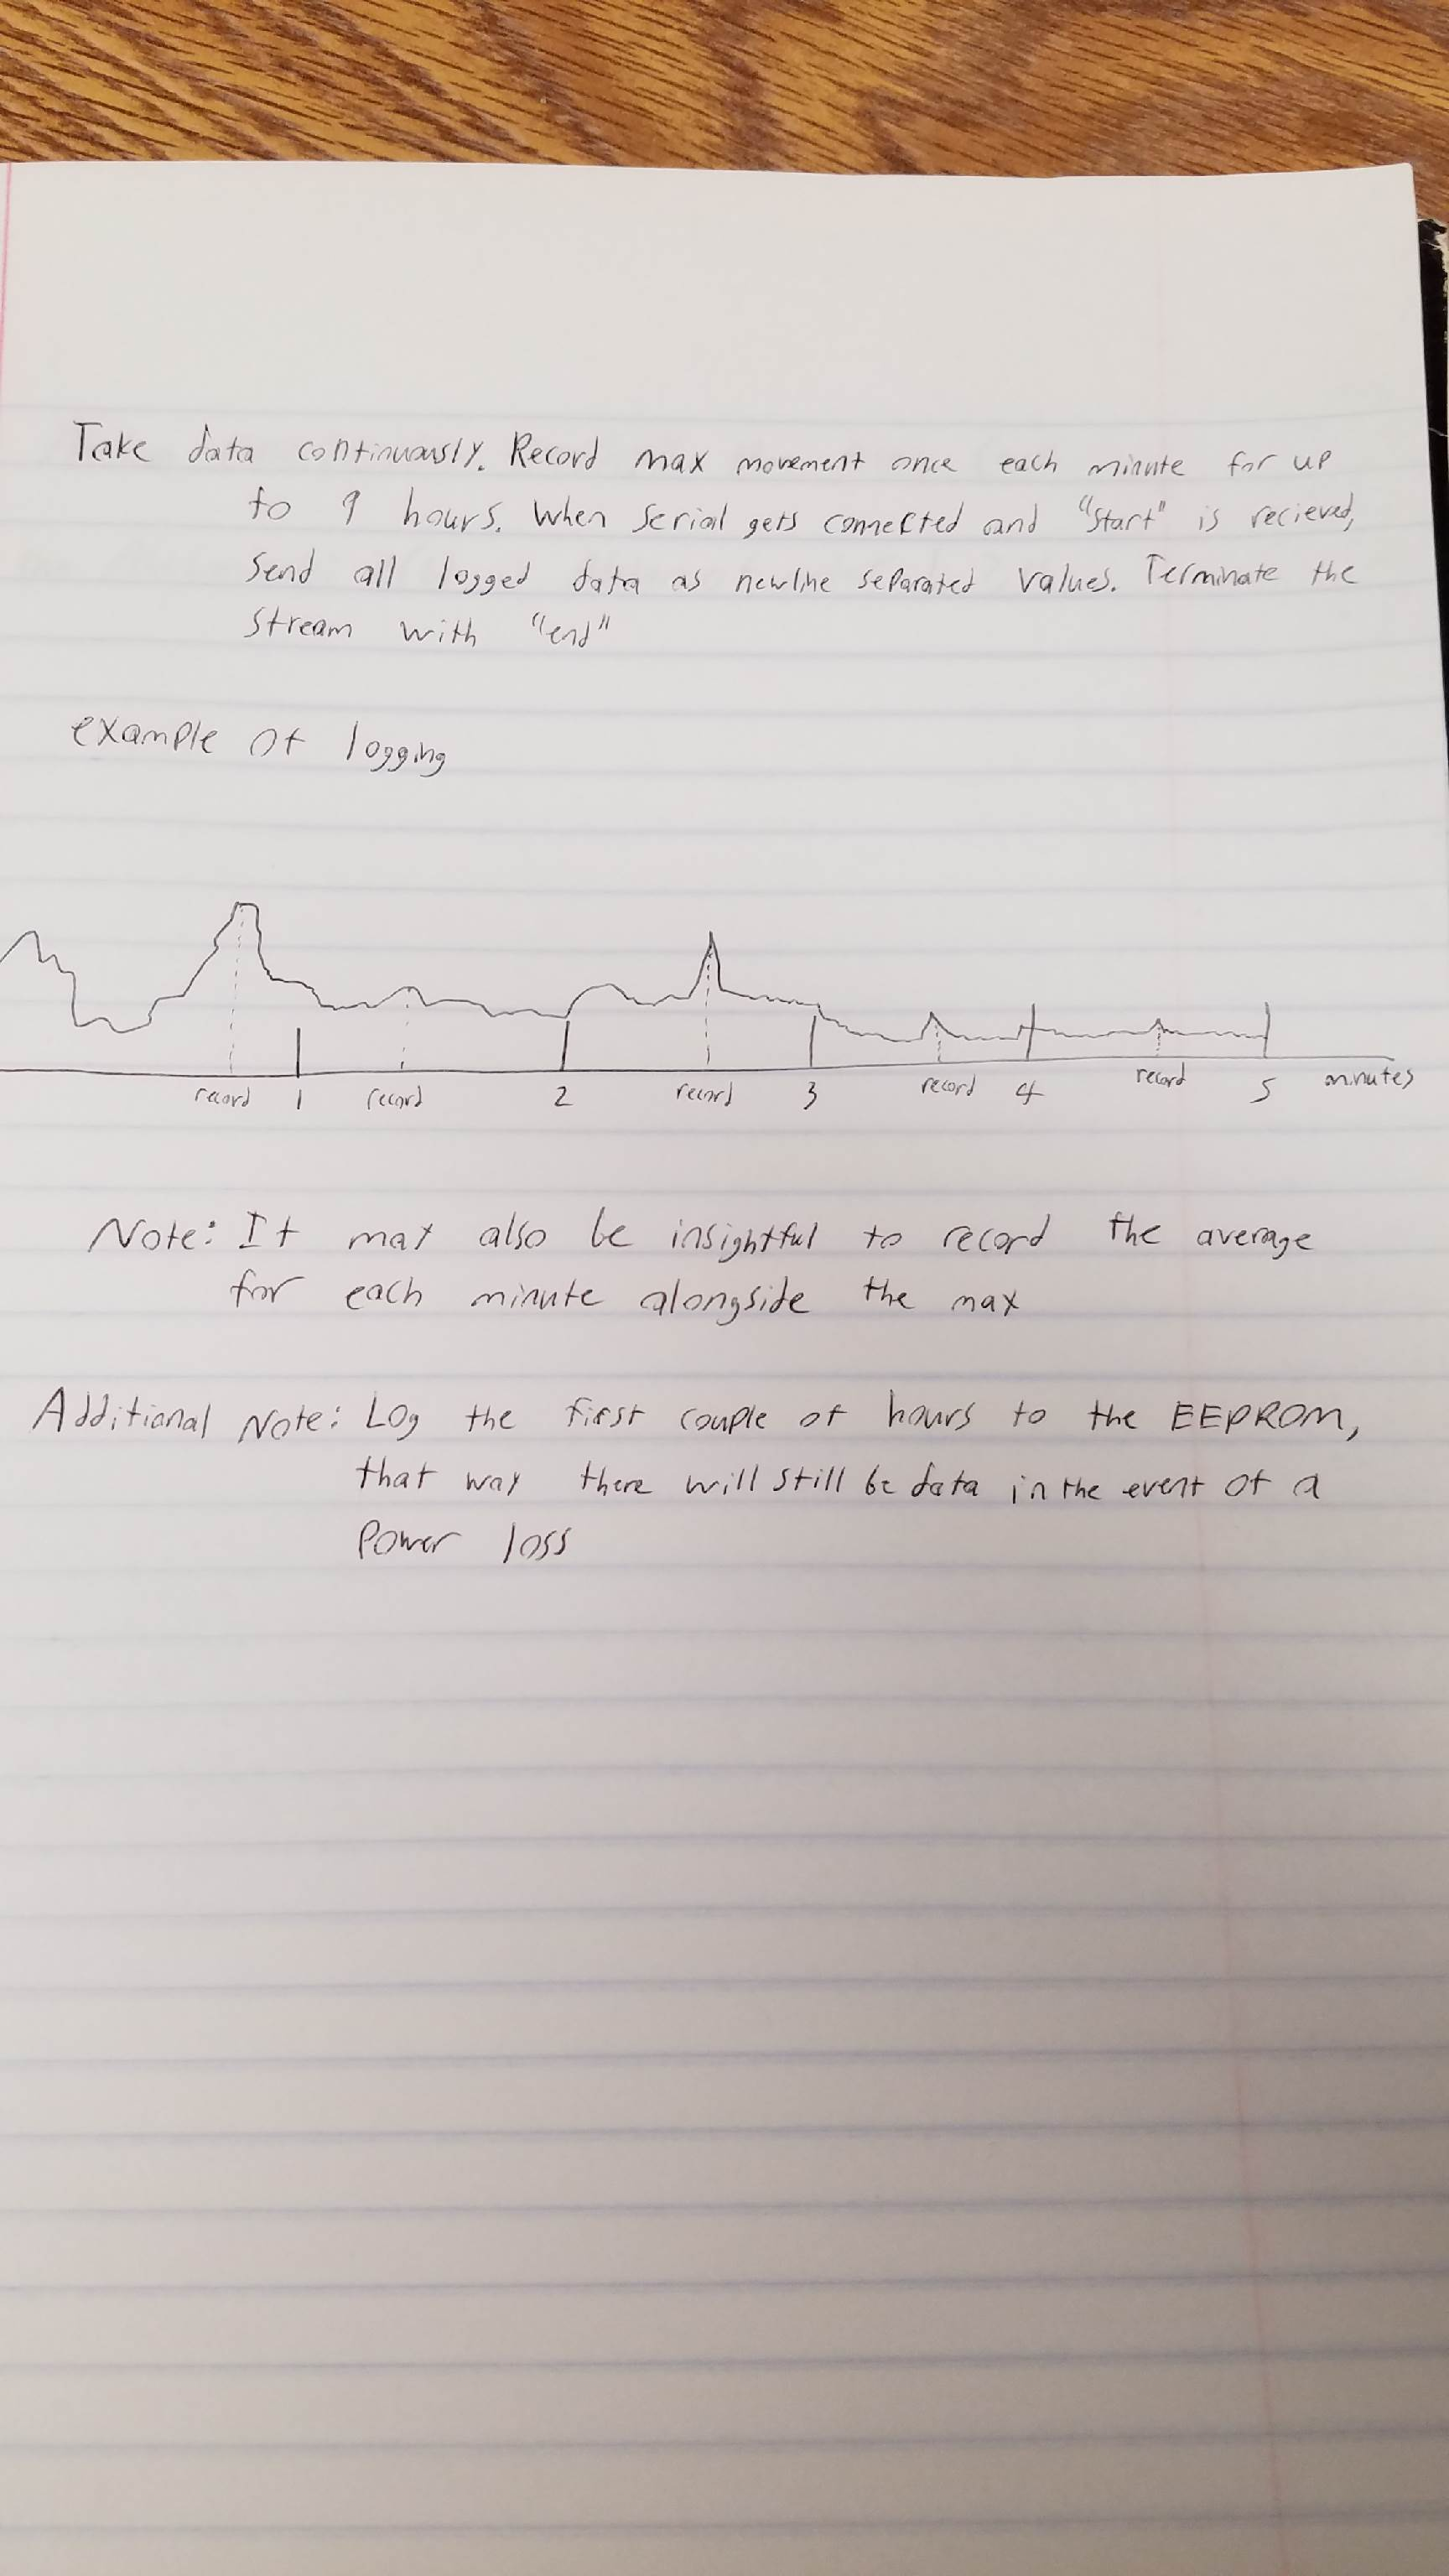 Take data continuously. Record max movement once each minute for up
to 9 hours. When serial gets connected and "start" is recieved,
send all logged data as newline separated values. Terminate the
stream with "end"
example of logging
record 1 record 2 record 3 record 4 record 5 minutes
Note: It may also be insightful to record the average
for each minute alongside the max
Additional Note: Log the first couple of hours to the EEPROM,
that way there will still be data in the event of a
power loss